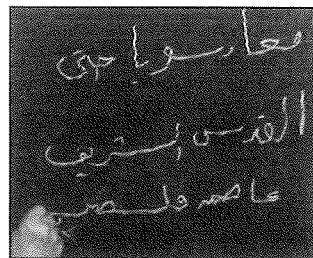 معا وسويا حتى
القدس الشريف
عاصمه فلسطين